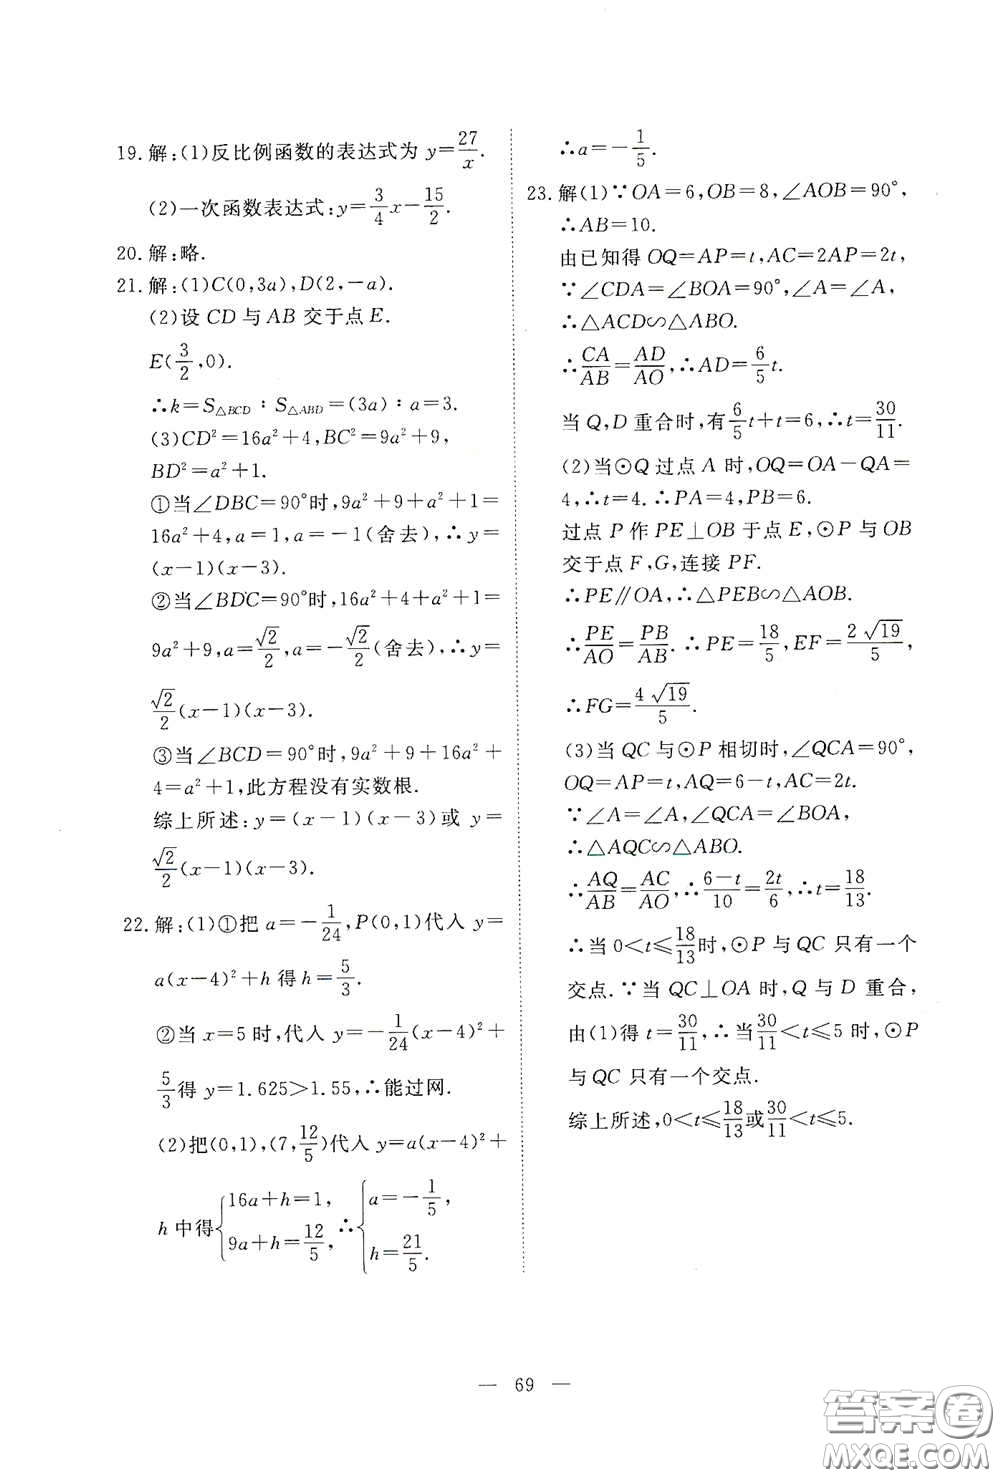 19.解:(1)反比例函数的表达式为 y=27/x.
(2)一次函数表达式:y=3/4x-15/2.
20.解:略.
21.解:(1)C(0,3a),D(2,-a).
(2)设 CD 与 AB 交于点 E.
E(3/2,0).
∴k=S△BCD∶S△ABD=(3a)∶a=3.
(3)CD²=16a²+4,BC²=9a²+9,
BD²=a²+1.
①当∠DBC=90°时,9a²+9+a²+1=
16a²+4,a=1,a=-1(舍去),∴y=
(x-1)(x-3).
②当∠BDC=90°时,16a²+4+a²+1=
9a²+9,a=√2/2,a=-√2/2(舍去),∴y=
√2/2(x-1)(x-3).
③当∠BCD=90°时,9a²+9+16a²+
4=a²+1,此方程没有实数根.
综上所述:y=(x-1)(x-3)或 y=
√2/2(x-1)(x-3).
22.解:(1)①把 a=-1/24,P(0,1)代入 y=
a(x-4)²+h 得 h=5/3.
②当 x=5 时,代入 y=-1/24(x-4)²+
5/3得 y=1.625>1.55,∴能过网.
(2)把(0,1),(7,12/5)代入 y=a(x-4)²+
h 中得{16a+h=1, 9a+h=12/5, ∴{a=-1/5, h=21/5.
∴a=-1/5.
23.解(1)∵OA=6,OB=8,∠AOB=90°,
∴AB=10.
由已知得 OQ=AP=t,AC=2AP=2t,
∵∠CDA=∠BOA=90°,∠A=∠A,
∴△ACD∽△ABO.
∴CA/AB=AD/AO,∴AD=6/5t.
当 Q,D 重合时,有6/5t+t=6,∴t=30/11.
(2)当⊙Q 过点 A 时,OQ=OA-QA=
4,∴t=4.∴PA=4,PB=6.
过点 P 作 PE⊥OB 于点 E,⊙P 与 OB
交于点 F,G,连接 PF.
∴PE∥OA,∴△PEB∽△AOB.
∴PE/AO=PB/AB.∴PE=18/5,EF=2√19/5,
∴FG=4√19/5.
(3)当 QC 与⊙P 相切时,∠QCA=90°,
OQ=AP=t,AQ=6-t,AC=2t.
∵∠A=∠A,∠QCA=∠BOA,
∴△AQC∽△ABO.
∴AQ/AB=AC/AO,∴6-t/10=2t/6,∴t=18/13.
∴当 0<t≤18/13时,⊙P 与 QC 只有一个
交点.∵当 QC⊥OA 时,Q 与 D 重合,
由(1)得 t=30/11,∴当30/11<t≤5 时,⊙P
与 QC 只有一个交点.
综上所述,0<t≤18/13或30/11<t≤5.
— 69 —
答案卷
MXQE.COM